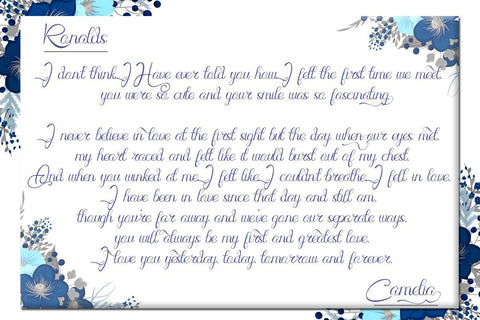 Ronalds
I don't think I Have ever told you how I felt the first time we met.
you were so cute and your smile was so fascinating.
I never believe in love at the first sight but the day when our eyes met,
my heart raced and felt like it would burst out of my chest.
And when you winked at me I felt like I couldn't breathe. I fell in love.
I have been in love since that day and still am.
though you're far away and we've gone our separate ways,
you will always be my first and greatest love.
I love you yesterday, today, tomorrow and forever.
Camelia